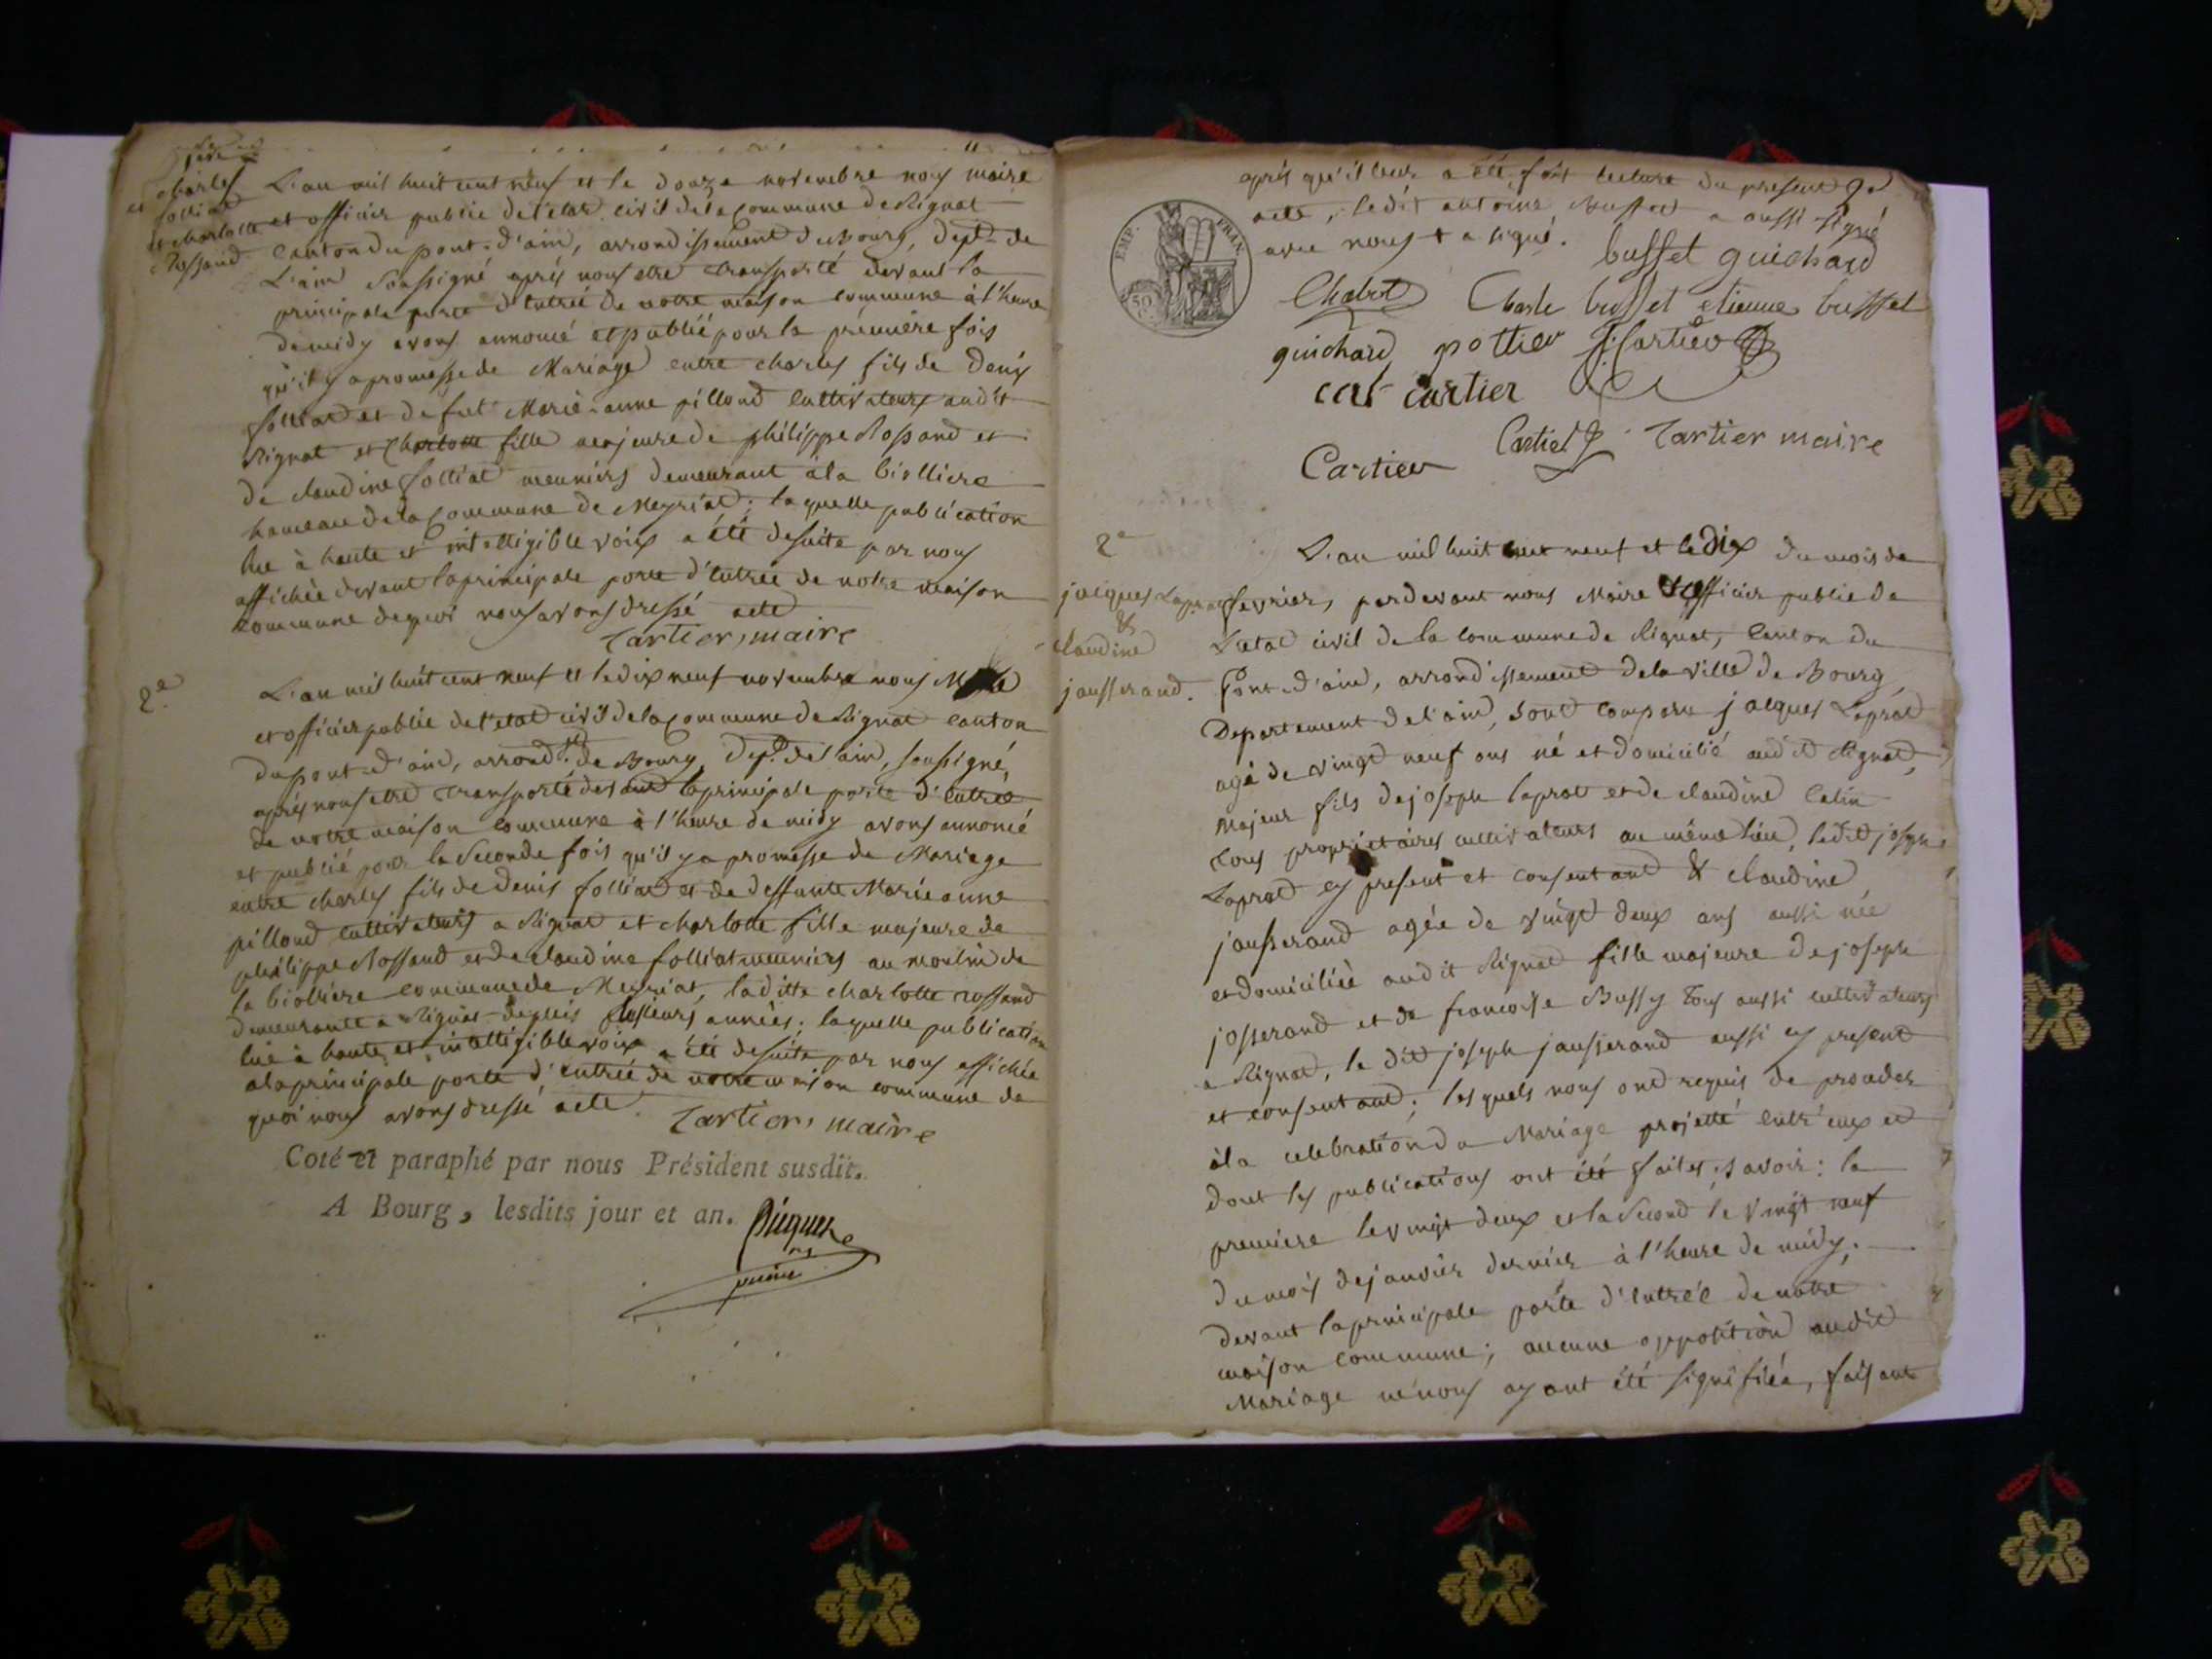 charles
folliat
et charlotte
Rossand
L'an mil huit cent neuf et le douze novembre nous maire
et officier public de l'etat civil de la Commune de Rignat
Canton du pont-d'ain, arrondissement de Bourg, dept. de
L'ain soussigné après nous etre transporté devant la
principale porte d'entrée de notre maison commune à l'heure
de midy avons annoncé et publié pour la première fois
qu'il y a promesse de Mariage entre charles fils de Denis
folliat et de fut Marie-anne pilloud cultivateurs audit
Rignat et Charlotte fille majeure de philippe Rossand et
de claudine folliat meuniers demeurant à la biolliere
hameau de la Commune de Meyriat; laquelle publication
lue à haute et intelligible voix a été de suite par nous
affichée devant la principale porte d'entrée de notre maison
commune de quoi nous avons dressé acte
Tartier, maire
2e
L'an mil huit cent neuf et le dix neuf novembre nous
et officier public de l'etat civil de la Commune de Rignat canton
du pont-d'ain, arrondt. de Bourg, Dept. de l'ain, soussigné,
après nous etre transporté devant la principale porte d'entrée
de notre maison commune à l'heure de midy avons annoncé
et publié pour la Seconde fois qu'il y a promesse de Mariage
entre charles fils de Denis folliat et de deffunte Marie anne
pilloud cultivateurs a Rignat et charlotte fille majeure de
philippe Rossand et de claudine folliat meuniers au moulin de
la biolliere commune de Meyriat, laditte charlotte rossand
demeurante a Rignat depuis plusieurs années; laquelle publication
lue à haute et intelligible voix a été de suite par nous affichée
a la principale porte d'entrée de notre maison commune de
quoi nous avons dressé acte.
Tartier, maire
Coté et paraphé par nous Président susdit.
A Bourg, lesdits jour et an.
après qu'il leur a été fait lecture du present
acte, ledit antoine Busset a aussi signé
avec nous + a signé.
EMP. FRAN.
50 C.
busset guichard
Chabot Charle busset etienne busset
guichard pottier J. Cartier
cartier
Cartier Cartier J Tartier maire
2e
jacques Laprat
&
claudine
jausserand.
L'an mil huit cent neuf et le dix du mois de
fevrier, pardevant nous Maire & officier public de
L'etat civil de la commune de Rignat, Canton du
Pont-d'ain, arrondissement de la ville de Bourg,
Departement de l'ain, sont comparu jacques Laprat
agé de vingt neuf ans né et domicilié audit Rignat,
Majeur fils de joseph laprat et de claudine Catin
tous proprietaires cultivateurs au même lieu, ledit joseph
Laprat cy present et consentant & claudine
jausserand agée de vingt deux ans aussi née
et domiciliée audit Rignat fille majeure de joseph
josserand et de francoise Bussy tous aussi cultivateurs
a Rignat, le dit joseph jausserand aussi cy present
et consentant; lesquels nous ont requis de proceder
à la celebration du Mariage projetté entr'eux et
dont les publications ont été faites, savoir: la
premiere le vingt deux et la Second le vingt neuf
du mois de janvier dernier à l'heure de midy,
devant la principale porte d'entrée de notre
maison commune; aucune opposition audit
Mariage ne nous ayant été signifiée, faisant